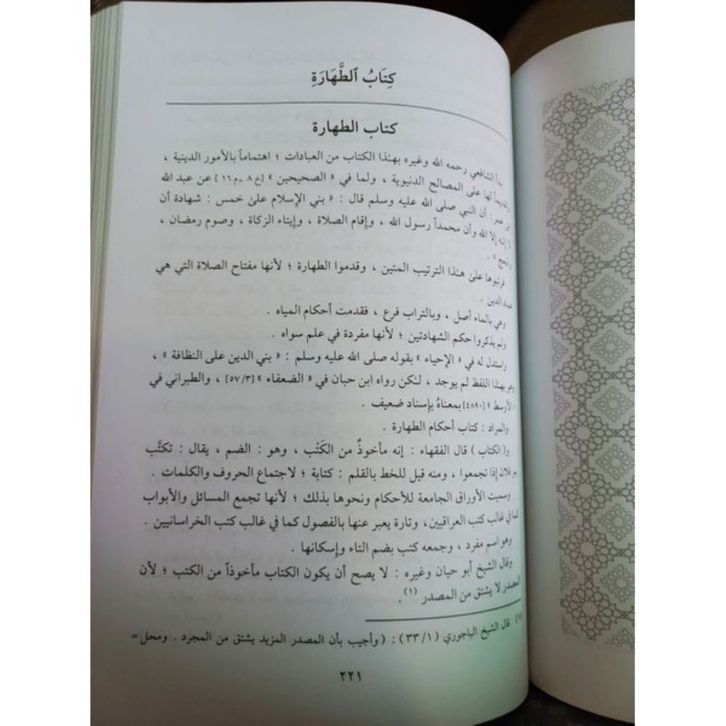 كِتَابُ ٱلطَّهَارَةِ
كتاب الطهارة
بدأ الشافعي رحمه الله وغيره بهذا الكتاب من العبادات ؛ اهتماماً بالأمور الدينية ،
وتقديماً لها على المصالح الدنيوية ، ولما في « الصحيحين » [خ ٨ ـ م ١٦] عن عبد الله
بن عمر : أن النبي صلى الله عليه وسلم قال : « بني الإسلام على خمس : شهادة أن
لا إله إلا الله وأن محمداً رسول الله ، وإقام الصلاة ، وإيتاء الزكاة ، وصوم رمضان ،
والحج » .
فرتبوها على هذا الترتيب المتين ، وقدموا الطهارة ؛ لأنها مفتاح الصلاة التي هي
عماد الدين .
وهي بالماء أصل ، وبالتراب فرع ، فقدمت أحكام المياه .
ولم يذكروا حكم الشهادتين ؛ لأنها مفردة في علم سواه .
واستدل له في « الإحياء » بقوله صلى الله عليه وسلم : « بني الدين على النظافة » ،
وهو بهذا اللفظ لم يوجد ، لكن رواه ابن حبان في « الضعفاء » [٥٧/٣] ، والطبراني في
« الأوسط » [٤٨٩٠] بمعناهُ بإسناد ضعيف .
والمراد : كتاب أحكام الطهارة .
و( الكتاب ) قال الفقهاء : إنه مأخوذٌ من الكَتْب ، وهو : الضم ، يقال : تكتَّب
بنو فلان إذا تجمعوا ، ومنه قيل للخط بالقلم : كتابة ؛ لاجتماع الحروف والكلمات .
وسميت الأوراق الجامعة للأحكام ونحوها بذلك ؛ لأنها تجمع المسائل والأبواب
كما في غالب كتب العراقيين ، وتارة يعبر عنها بالفصول كما في غالب كتب الخراسانيين .
وهو اسم مفرد ، وجمعه كتب بضم التاء وإسكانها .
وقال الشيخ أبو حيان وغيره : لا يصح أن يكون الكتاب مأخوذاً من الكتب ؛ لأن
المصدر لا يشتق من المصدر (١) .
(١) قال الشيخ الباجوري (٣٣/١) : ( وأجيب بأن المصدر المزيد يشتق من المجرد . ومحل =
٢٢١